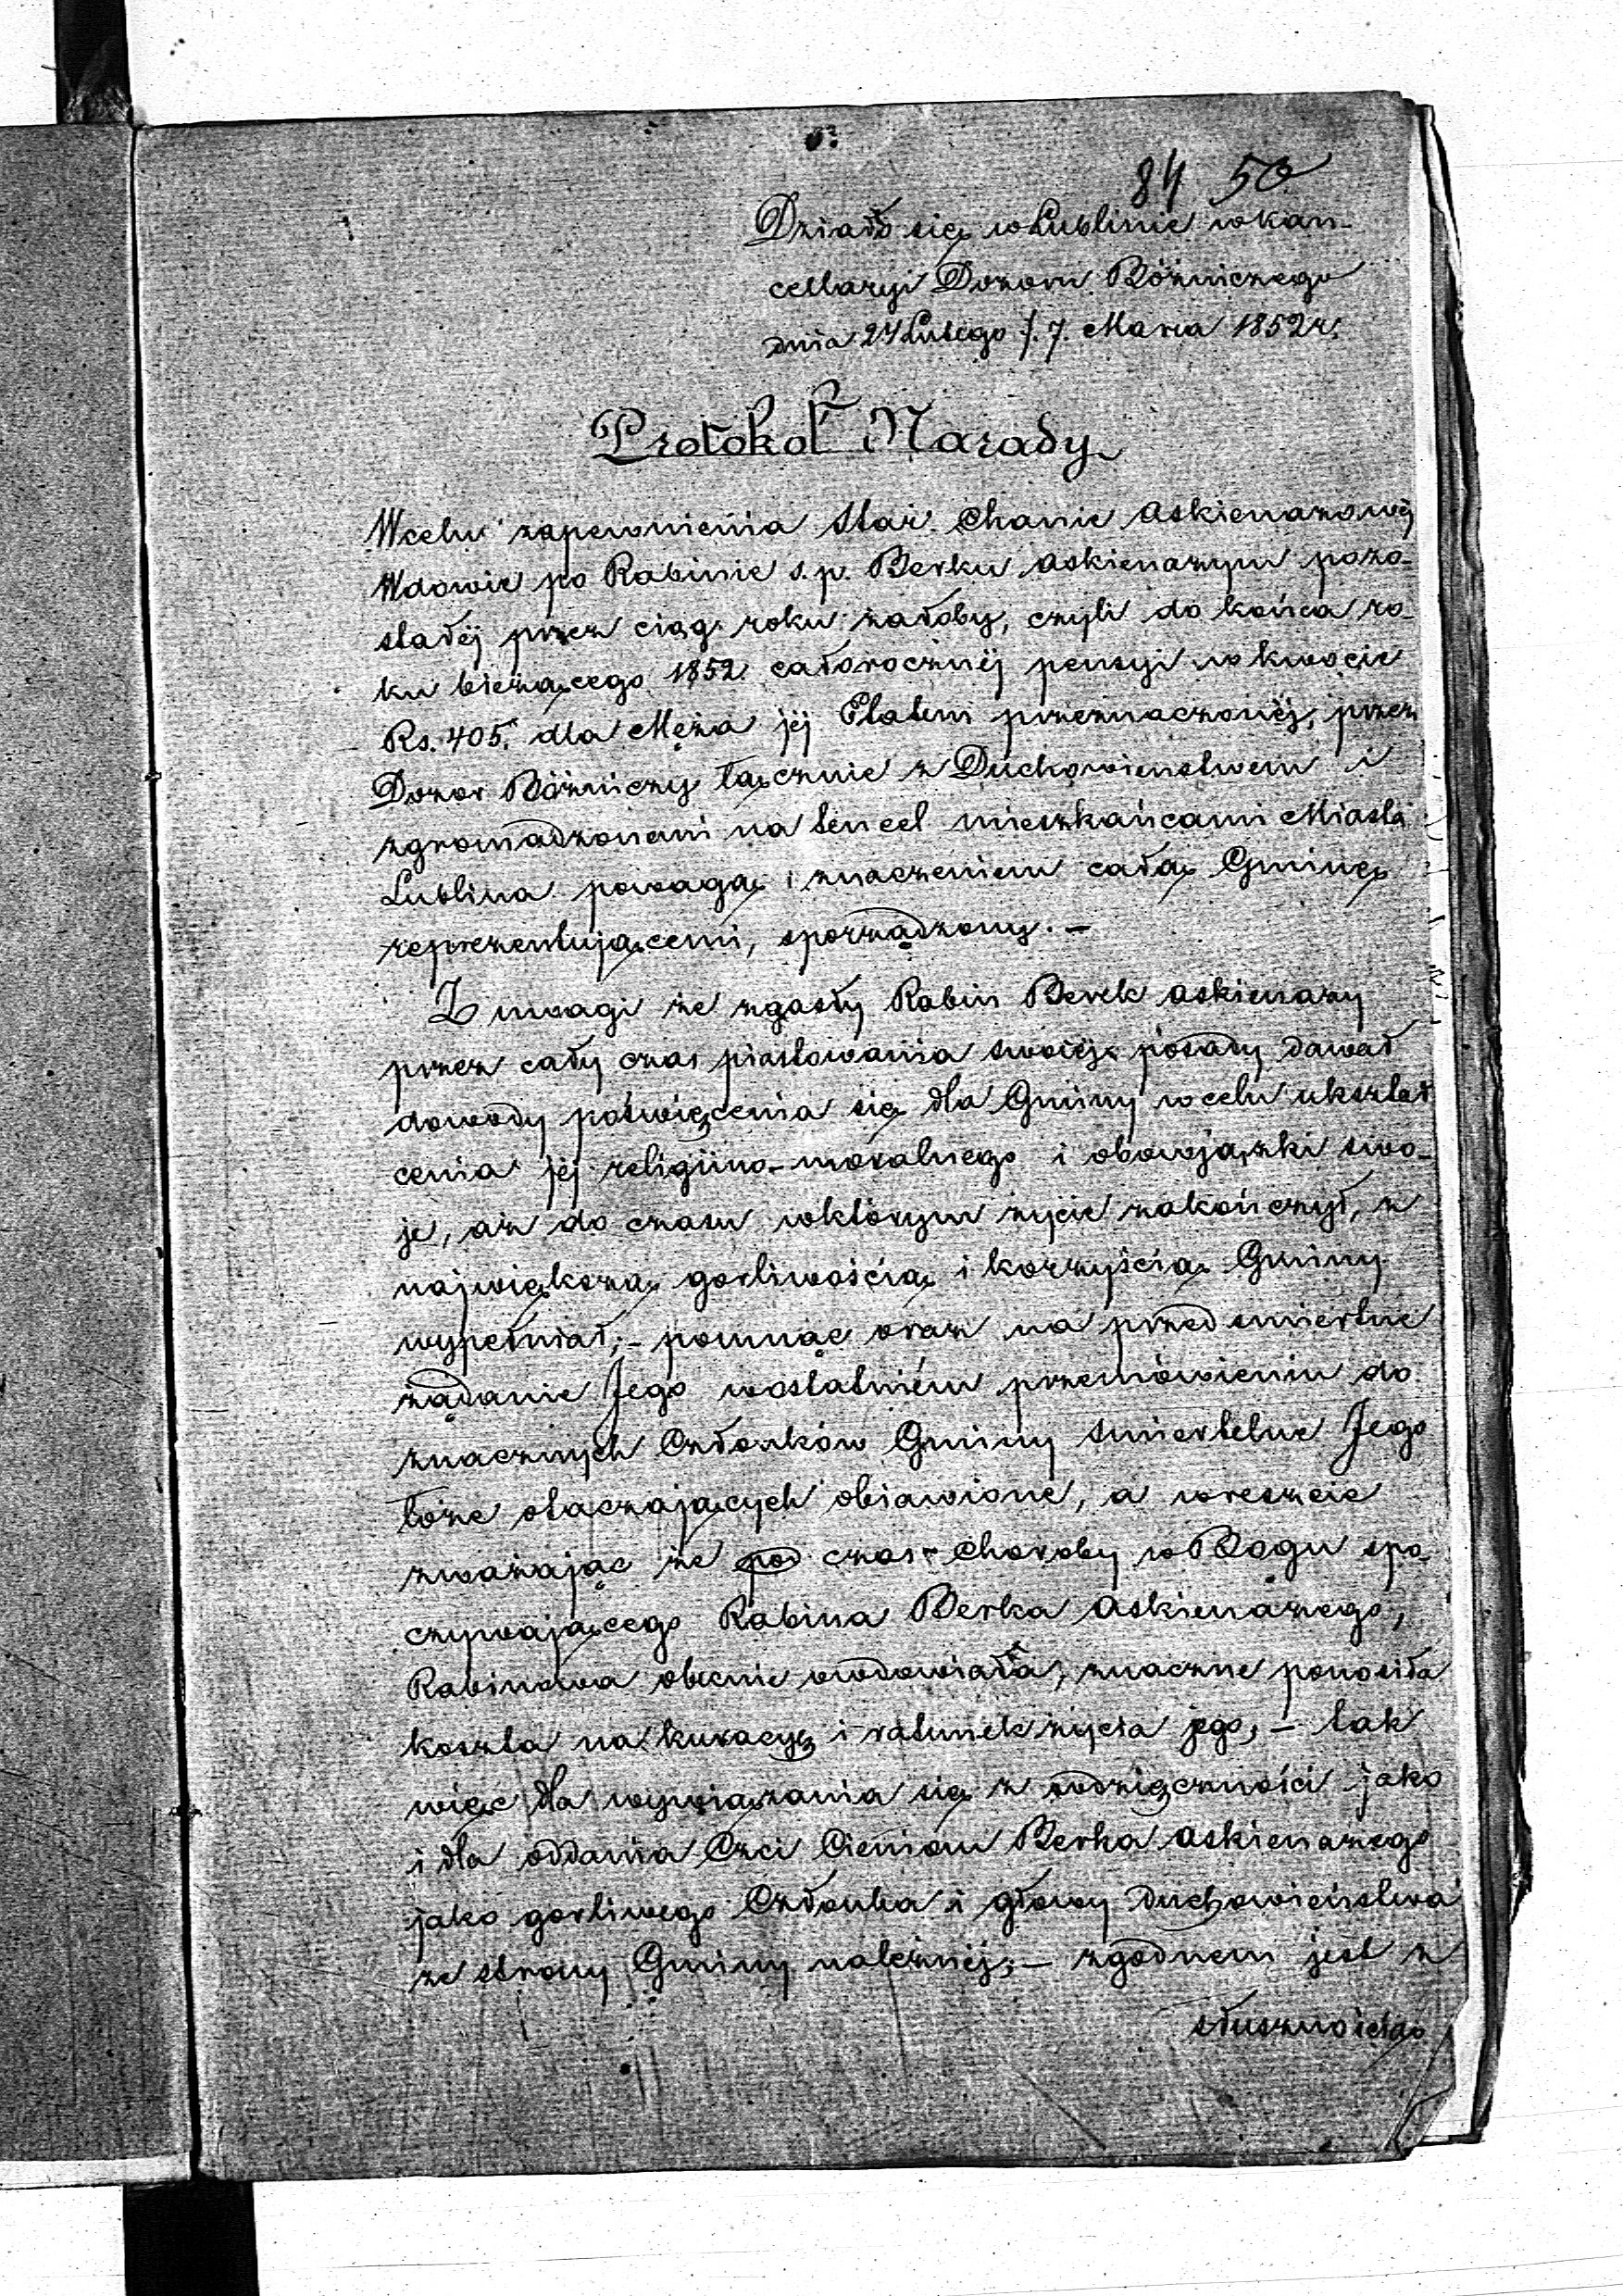 84 50
Działo się w Lublinie w kan-
cellaryi Dozoru Bóżniczego
dnia 24 Lutego /. 7. Marca 1852 r.
Protokoł Narady
W celu zapewnienia Star. Chanie Askienazowéj
Wdowie po Rabinie s.p. Berku Askienazym pozo-
stałéj przez ciąg roku żałoby, czyli do końca ro-
ku bieżącego 1852 całorocznéj pensyi w kwocie
Rs. 405. dla Męża jéj Etatem przeznaczonéj, przez
Dozor Bóżniczy łącznie z Duchowieństwem i
zgromadzonemi na ten cel mieszkańcami Miasta
Lublina powagą i znaczeniem całą Gminę
reprezentującemi, sporządzony. —
Z uwagi że zgasły Rabin Berek Askienazy
przez cały czas piastowania swoiéj posady dawał
dowody poświęcenia się dla Gminy w celu ukształ
cenia jéj religiino-moralnego i obowjązki swo-
je, aż do czasu w którym życie zakończył, z
największą gorliwością i korzyścią Gminy
wypełniał; – pomnąc oraz na przedsmiertne
żądanie Jego w ostatniém przemówieniu do
znacznych Członków Gminy smiertelne Jego
łoże otaczających obiawione, a wreszcie
zważając że pod czas choroby w Bogu spo
czywającego Rabina Berka Askienazego,
Rabinowa obecnie owdowiała, znaczne ponosiła
koszta na kuracyę i ratunek życia jego, — tak
więc dla wywiązania się z wdzięczności jako
i dla oddania Czci Cieniom Berka Askienazego
jako gorliwego Członka i głowy Duchowieństwa
ze strony Gminy należnéj; — zgodnem jest z
słusznością